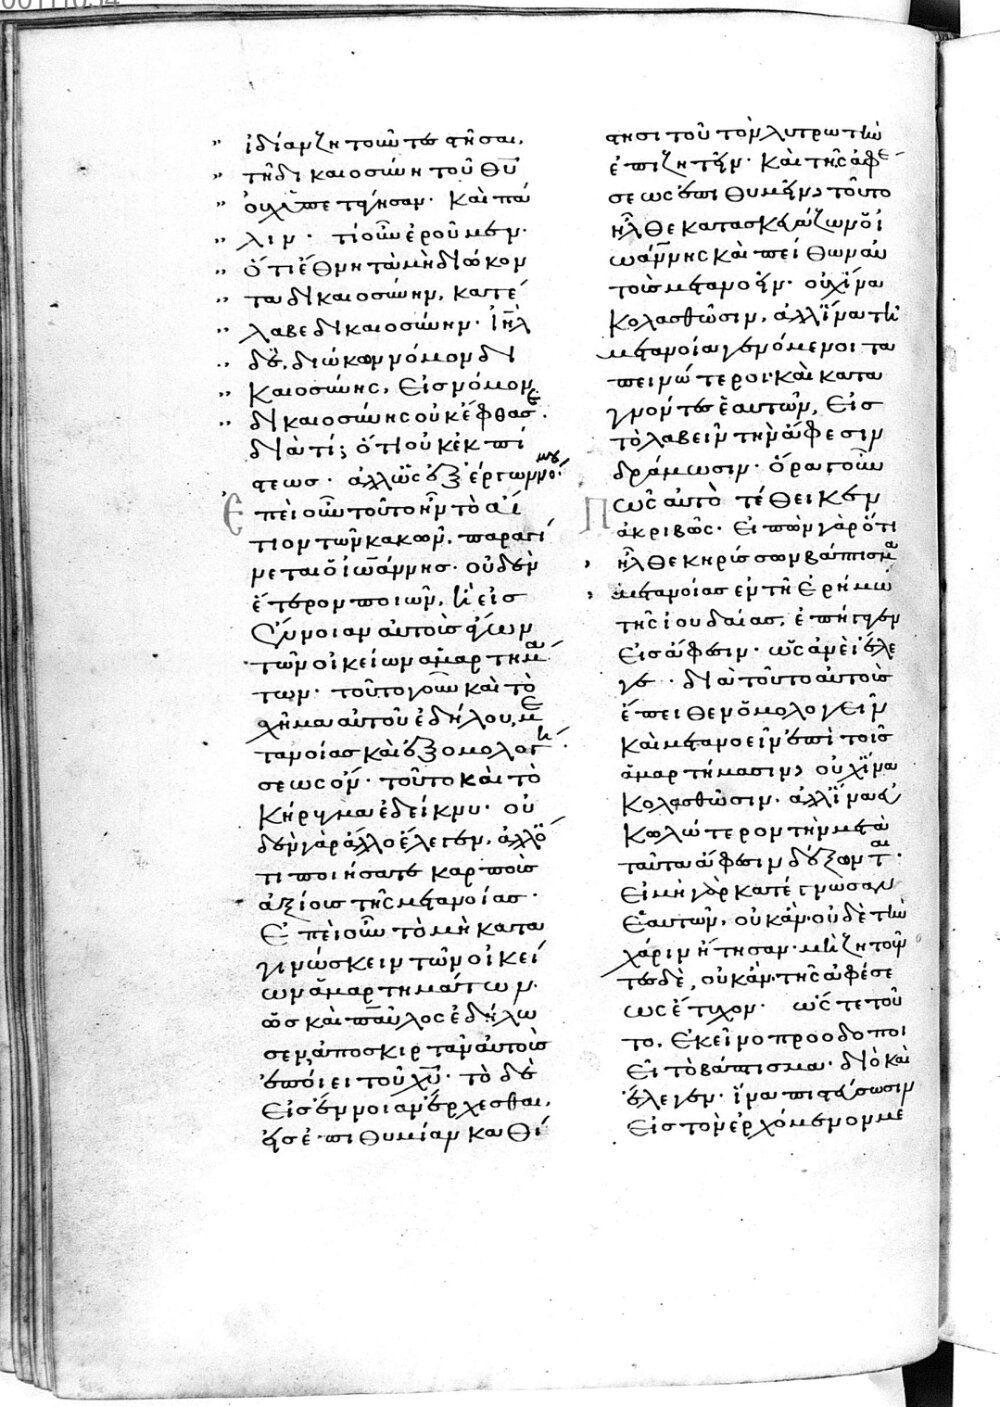 ἰδίαν ζητοῦντες στῆσαι,
τῇ δικαιοσύνῃ τοῦ θῦ
οὐχ ὑπετάγησαν· καὶ πά
λιν· τί οὖν ἐροῦμεν·
ὅτι ἔθνη τὰ μὴ διώκον
τα δικαιοσύνην, κατέ
λαβε δικαιοσύνην· ἰῆλ
δὲ, διώκων νόμον δι
καιοσύνης, εἰς νόμον
δικαιοσύνης οὐκ ἔφθασε·
διὰ τί; ὅτι οὐκ ἐκ πί
στεως· ἀλλ' ὡς ἐξ ἔργων νόμου·
ἐπεὶ οὖν τοῦτο ἦν τὸ αἴ
τιον τῶν κακῶν, παραγί
νεται ὁ ἰωάννης· οὐδὲν
ἕτερον ποιῶν, ἢ εἰς
ἔννοιαν αὐτοὺς ἄγων
τῶν οἰκείων ἁμαρτημά
των· τοῦτο γοῦν καὶ τὸ
σχῆμα αὐτοῦ ἐδήλου, με
τανοίας καὶ ἐξομολογή
σεως ὄν· τοῦτο καὶ τὸ
κήρυγμα ἐδείκνυ· οὐ
δὲν γὰρ ἄλλο ἔλεγεν, ἀλλ' ὅ
τι ποιήσατε καρποὺς
ἀξίους τῆς μετανοίας·
ἐπεὶ οὖν τὸ μὴ κατα
γινώσκειν τῶν οἰκεί
ων ἁμαρτημάτων·
ὡς καὶ παῦλος ἐδήλω
σεν, ἀποσκιρτᾶν αὐτοὺς
ἐποίει τοῦ χῦ· τὸ δὲ
εἰς ἔννοιαν ἔρχεσθαι,
εἰς ἐπιθυμίαν καθί
στησι τοῦ τὸν λυτρωτὴν
ἐπιζητεῖν· καὶ τῆς ἀφέ
σεως ἐπιθυμεῖν, τοῦτο
ἦλθε κατασκευάζων ὁ ἰ
ωάννης καὶ πείθων αὐ
τοὺς μετανοεῖν· οὐχ ἵνα
κολασθῶσιν, ἀλλ' ἵνα τῇ
μετανοίᾳ γενόμενοι τα
πεινώτεροι· καὶ κατα
γνόντες ἑαυτῶν, εἰς
τὸ λαβεῖν τὴν ἄφεσιν
δράμωσιν· ὅρα γοῦν
πῶς αὐτὸ τέθεικεν
ἀκριβῶς· εἰπὼν γὰρ ὅτι
ἦλθε κηρύσσων βάπτισμα
μετανοίας ἐν τῇ ἐρήμῳ
τῆς ἰουδαίας, ἐπήγαγεν
εἰς ἄφεσιν· ὡς ἂν εἰ ἔλε
γε· διὰ τοῦτο αὐτοὺς
ἔπειθεν ὁμολογεῖν
καὶ μετανοεῖν ἐπὶ τοῖς
ἁμαρτήμασιν, οὐχ ἵνα
κολασθῶσιν· ἀλλ' ἵνα εὐ
κολώτερον τὴν μετὰ
ταῦτα ἄφεσιν δέξωνται·
εἰ μὴ γὰρ κατέγνωσαν
ἑαυτῶν, οὐκ ἂν· οὐδὲ τὴν
χάριν ᾔτησαν· μὴ ζητοῦν
τες δὲ, οὐκ ἂν· τῆς ἀφέσε
ως ἔτυχον· ὥστε τοῦ
το, ἐκεῖνο προοδοποι
εῖ τὸ βάπτισμα· διὸ καὶ
ἔλεγεν· ἵνα πιστεύσωσιν
εἰς τὸν ἐρχόμενον με